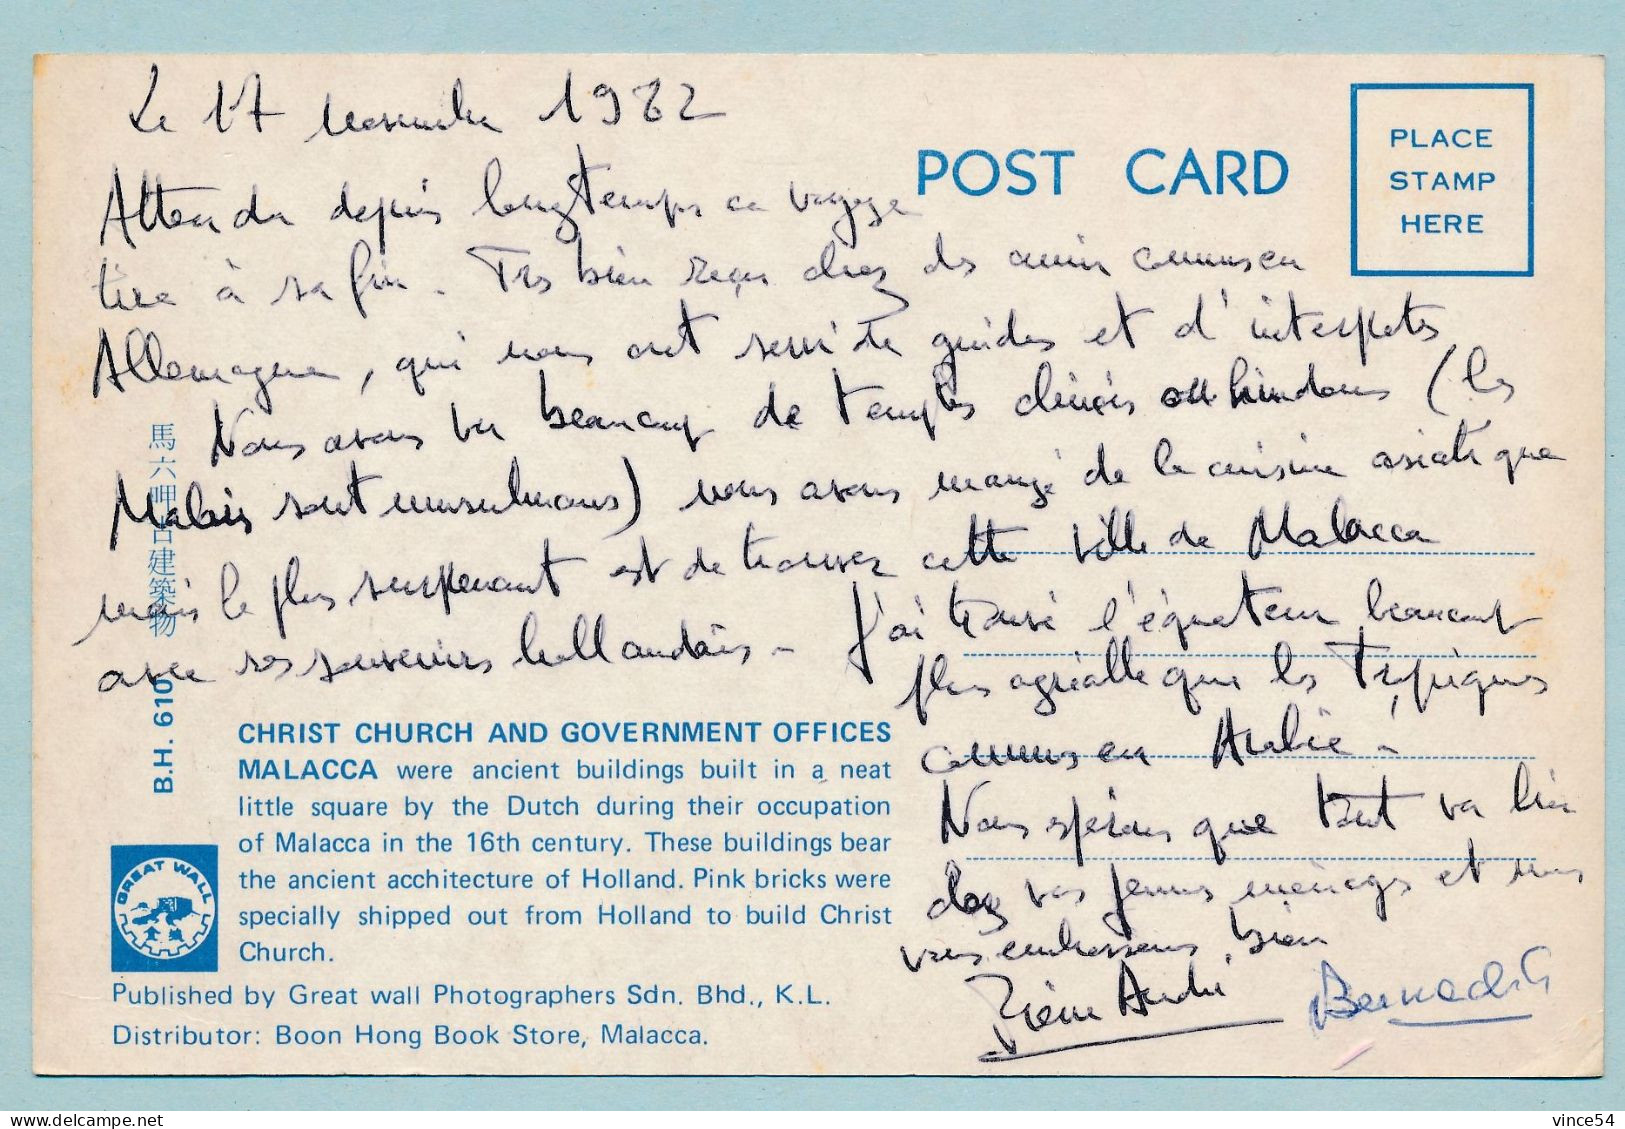 Le 17 novembre 1982
Attendu depuis longtemps ce voyage
tire à sa fin. Très bien reçus chez des amis connus en
Allemagne, qui nous ont servi de guides et d'interprètes,
Nous avons vu beaucoup de temples chinois ou hindous (les
Malais sont musulmans) nous avons mangé de la cuisine asiatique
mais le plus surprenant est de trouver cette ville de Malacca
avec ses souvenirs hollandais - J'ai trouvé l'équateur beaucoup
plus agréable que les Tropiques
connus en Arabie -
Nous espérons que tout va bien
chez vos jeunes ménages et nous
vous embrassons bien
Pierre André Bernadette
POST CARD
PLACE
STAMP
HERE
馬六呷古建築物
B.H. 610
CHRIST CHURCH AND GOVERNMENT OFFICES
MALACCA were ancient buildings built in a neat
little square by the Dutch during their occupation
of Malacca in the 16th century. These buildings bear
the ancient acchitecture of Holland. Pink bricks were
specially shipped out from Holland to build Christ
Church.
GREAT WALL
Published by Great wall Photographers Sdn. Bhd., K.L.
Distributor: Boon Hong Book Store, Malacca.
delcampe.net
vince54